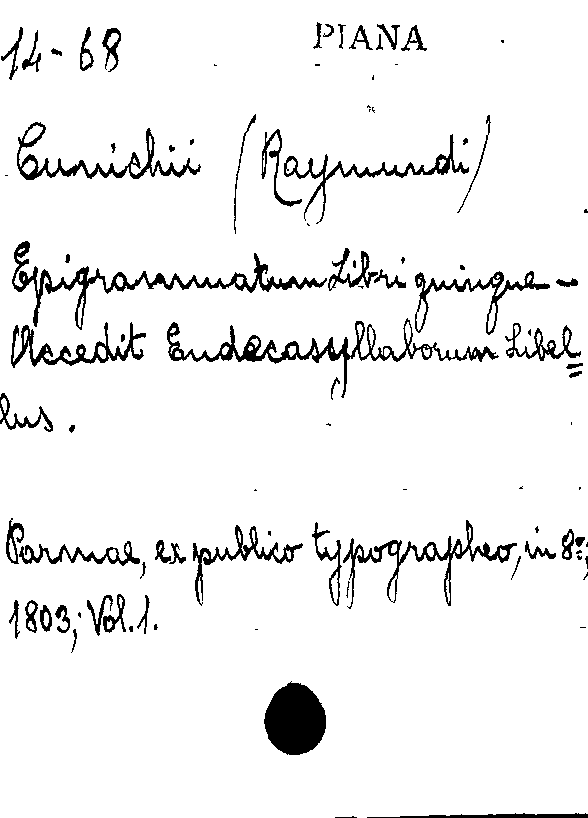 14-68 PIANA
Cunichii (Raymundi)
Epigrammatum Libri quinque -
Accedit Endecasyllaborum Libel=
lus.
Parmae, ex publico typographeo, in 8º;
1803; Vol. 1.